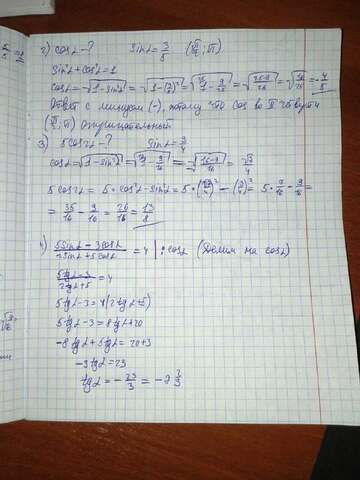 2) cosα - ? sinα = 3/5 (π/2; π)
sin²α + cos²α = 1
cosα = √(1 - sin²α) = √(1 - (3/5)²) = √(1 - 9/25) = √((25-9)/25) = √(16/25) = -4/5
Ответ с минусом (-), потому что cos во II четверти
(π/2; π) отрицательный
3) 5cos2α - ? sinα = 3/4
cosα = √(1 - sin²α) = √(1 - 9/16) = √((16-9)/16) = √7/4
5cos2α = 5 · cos²α - sin²α = 5 · (√7/4)² - (3/4)² = 5 · 7/16 - 9/16 =
= 35/16 - 9/16 = 26/16 = 13/8
4) (5sinα - 3cosα)/(2sinα + 5cosα) = 4 | : cosα (Делим на cosα)
(5tgα - 3)/(2tgα + 5) = 4
5tgα - 3 = 4(2tgα + 5)
5tgα - 3 = 8tgα + 20
-8tgα + 5tgα = 20 + 3
-3tgα = 23
tgα = -23/3 =